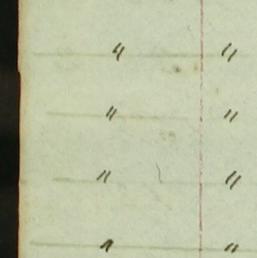 " "
" "
" "
" "